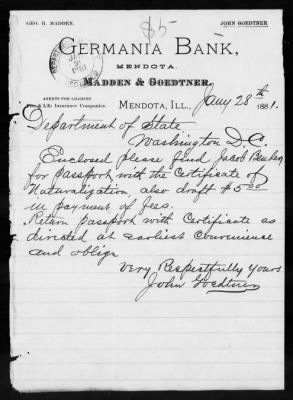 $5
GEO. H. MADDEN.
JOHN GOEDTNER
GERMANIA BANK,
MENDOTA.
MADDEN & GOEDTNER.
AGENTS FOR LEADING
Fire & Life Insurance Companies.
MENDOTA, ILL., Jany 28th 1881.
Department of State
Washington D.C
Enclosed please find Jacob
for passport with the Certificate of
Naturalization, also draft $5.00
in payment of fees.
Return passport with Certificate as
directed at Earliest Convenience
and oblige
Very Respectfully Yours
John Goedtner